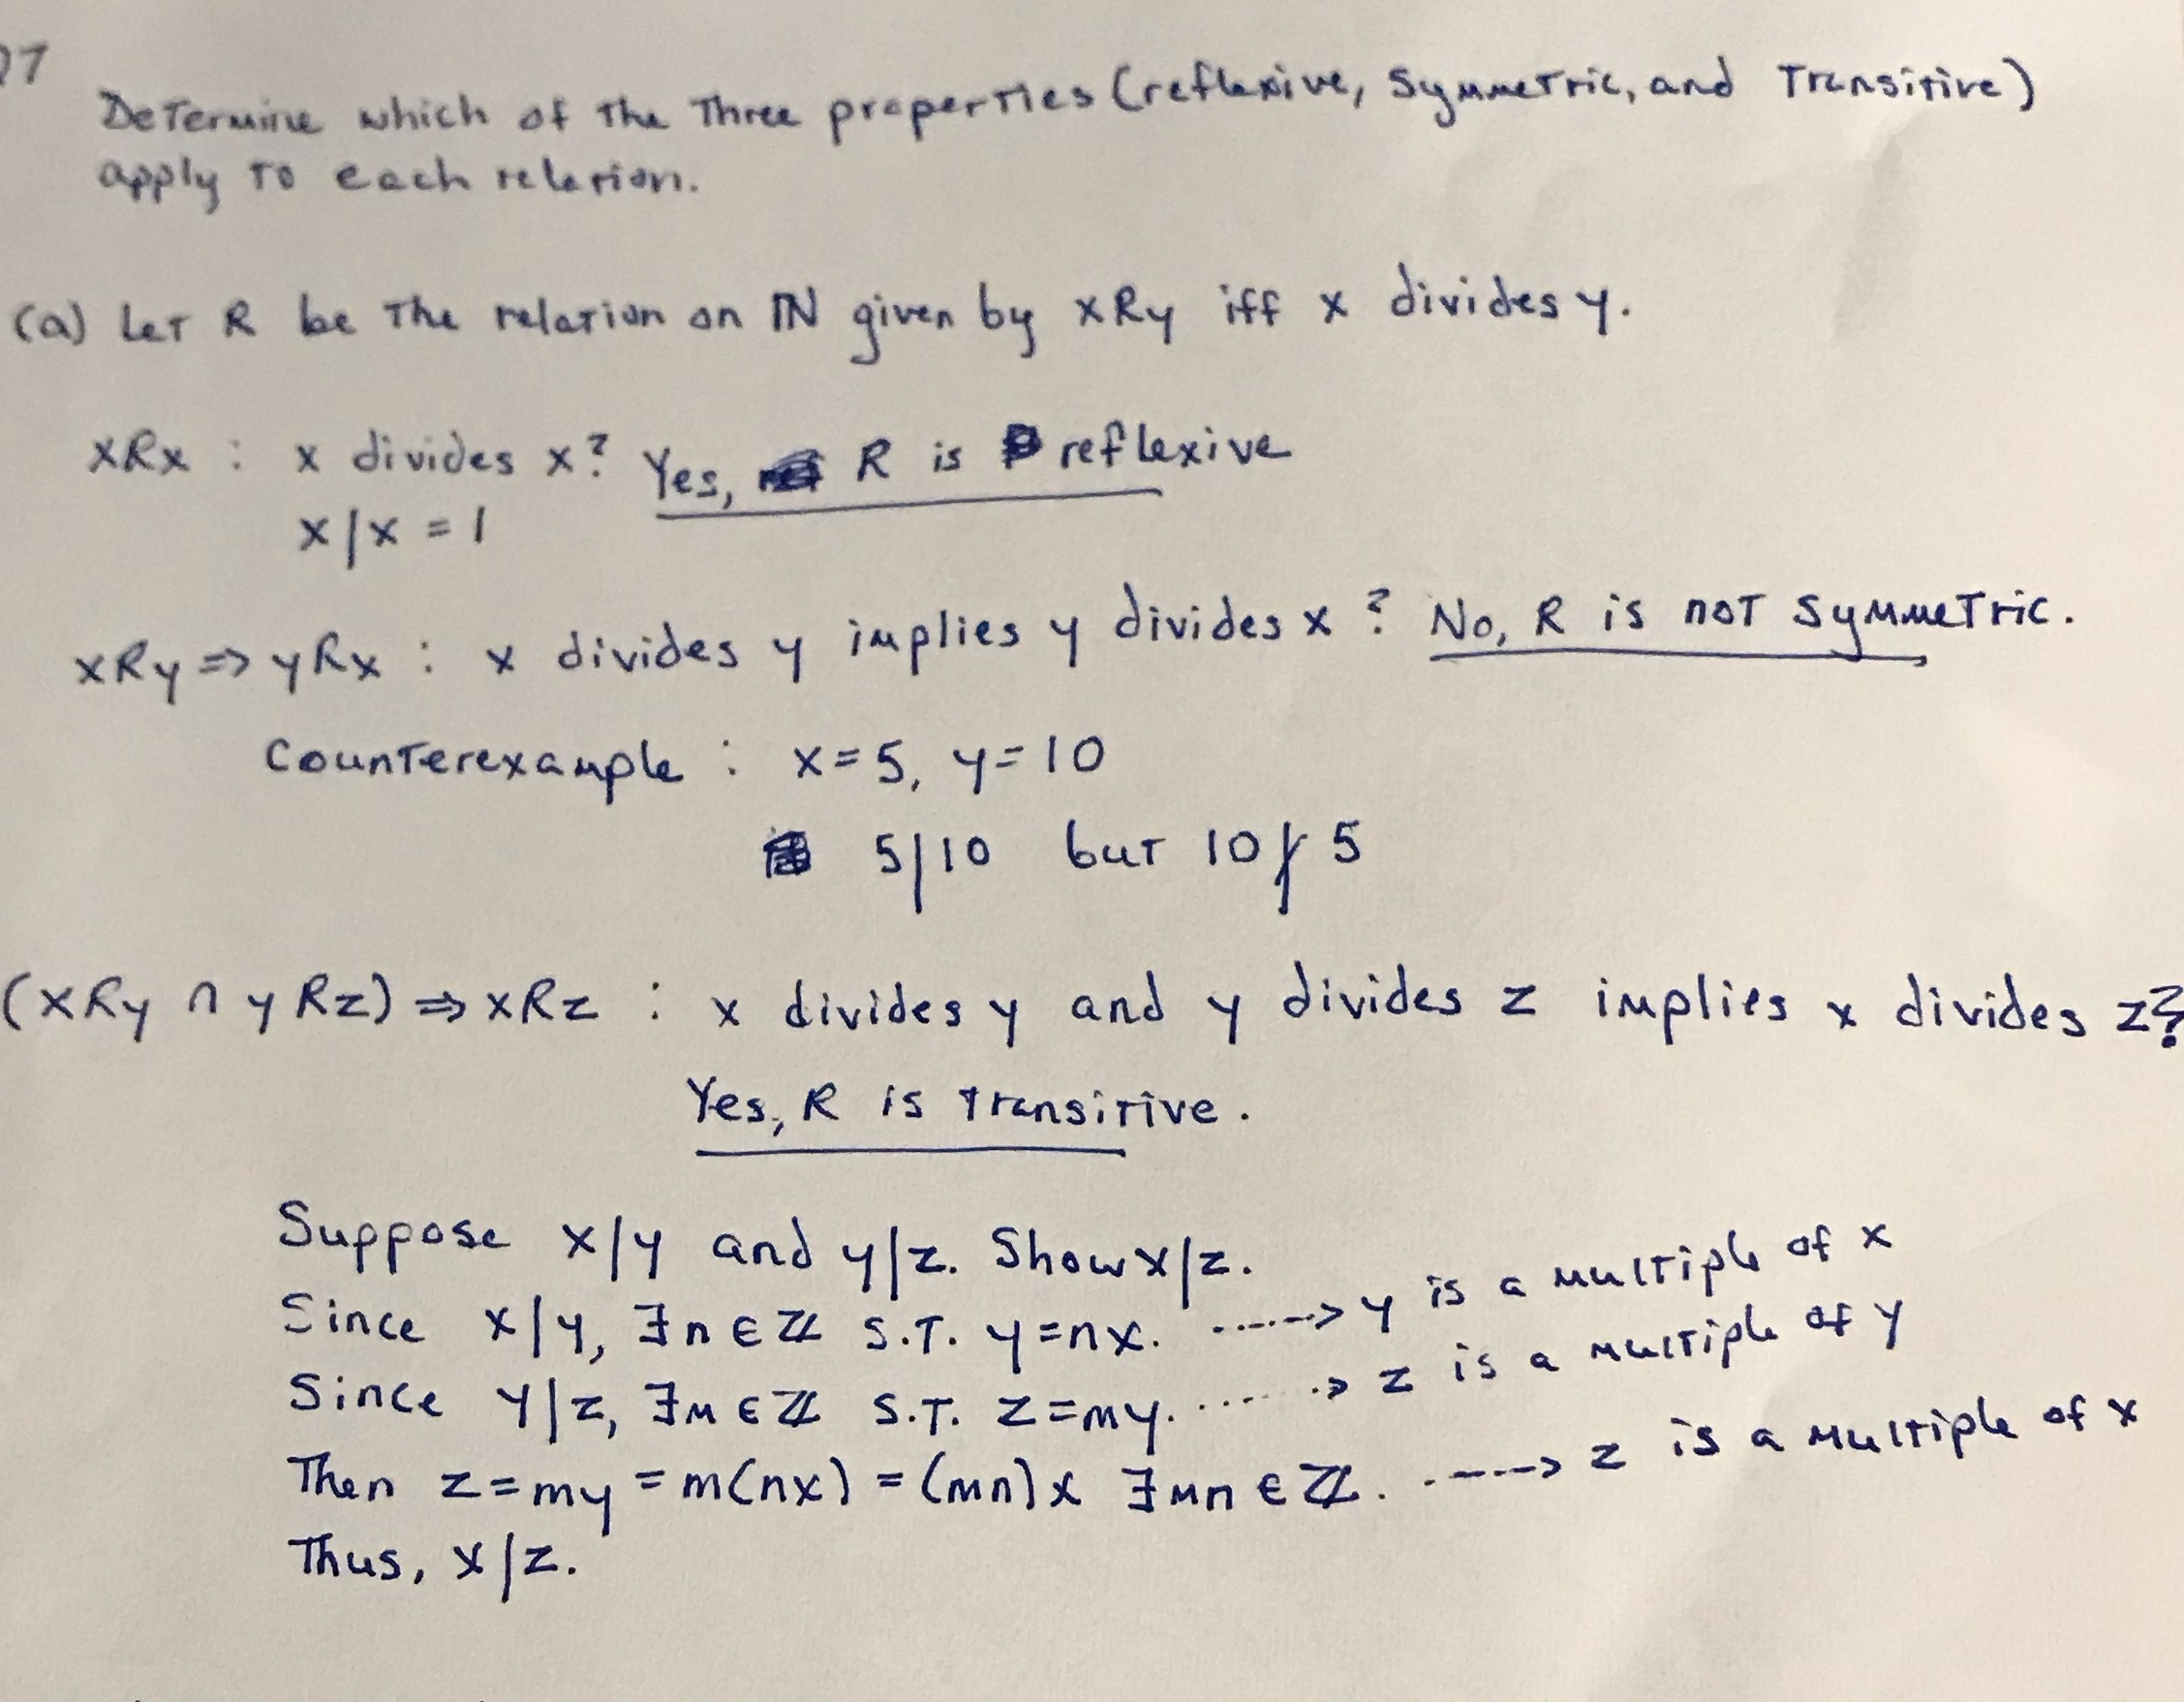 Determine which of the three properties (reflexive, symmetric, and transitive)
apply to each relation.
(a) Let R be the relation on ℕ given by xRy iff x divides y.
xRx : x divides x? Yes, R is reflexive
x/x = 1
xRy ⇒ yRx : x divides y implies y divides x ? No, R is not symmetric.
Counterexample : x = 5, y = 10
5|10 but 10∤5
(xRy ∩ yRz) ⇒ xRz : x divides y and y divides z implies x divides z?
Yes, R is transitive.
Suppose x|y and y|z. Show x|z.
Since x|y, ∃n∈ℤ s.t. y=nx. ----> y is a multiple of x
Since y|z, ∃m∈ℤ s.t. z=my. ----> z is a multiple of y
Then z=my = m(nx) = (mn)x ∃mn∈ℤ. ----> z is a multiple of x
Thus, x|z.